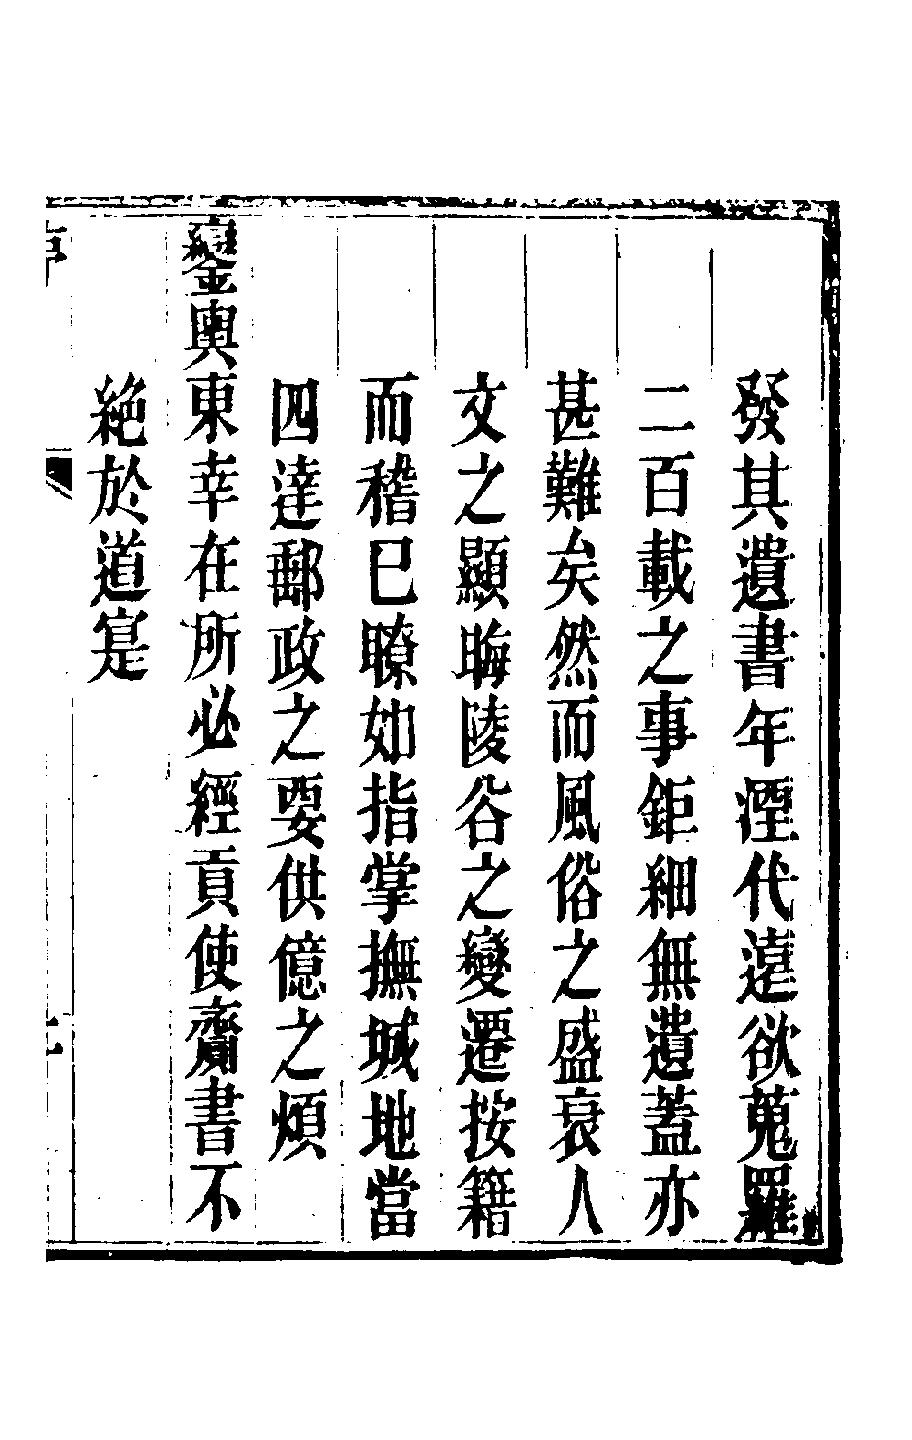 發其遺書年湮代遠欲蒐羅
二百載之事鉅細無遺蓋亦
甚難矣然而風俗之盛衰人
文之顯晦陵谷之變遷按籍
而稽巳瞭如指掌撫城地當
四達郵政之要供億之煩
鑾輿東幸在所必經貢使齎書不
絶於道寔